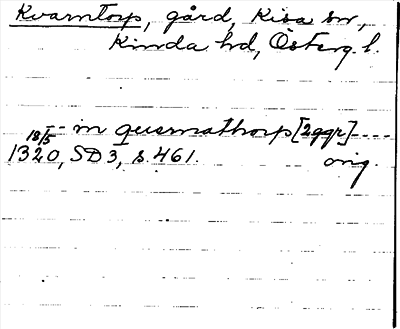 Kvarntorp, gård, Kisa sn,
Kinda hd, Österg. l.
-- in quernathorp [2ggr] ----
18/5
1320, SD 3, s. 461. orig.